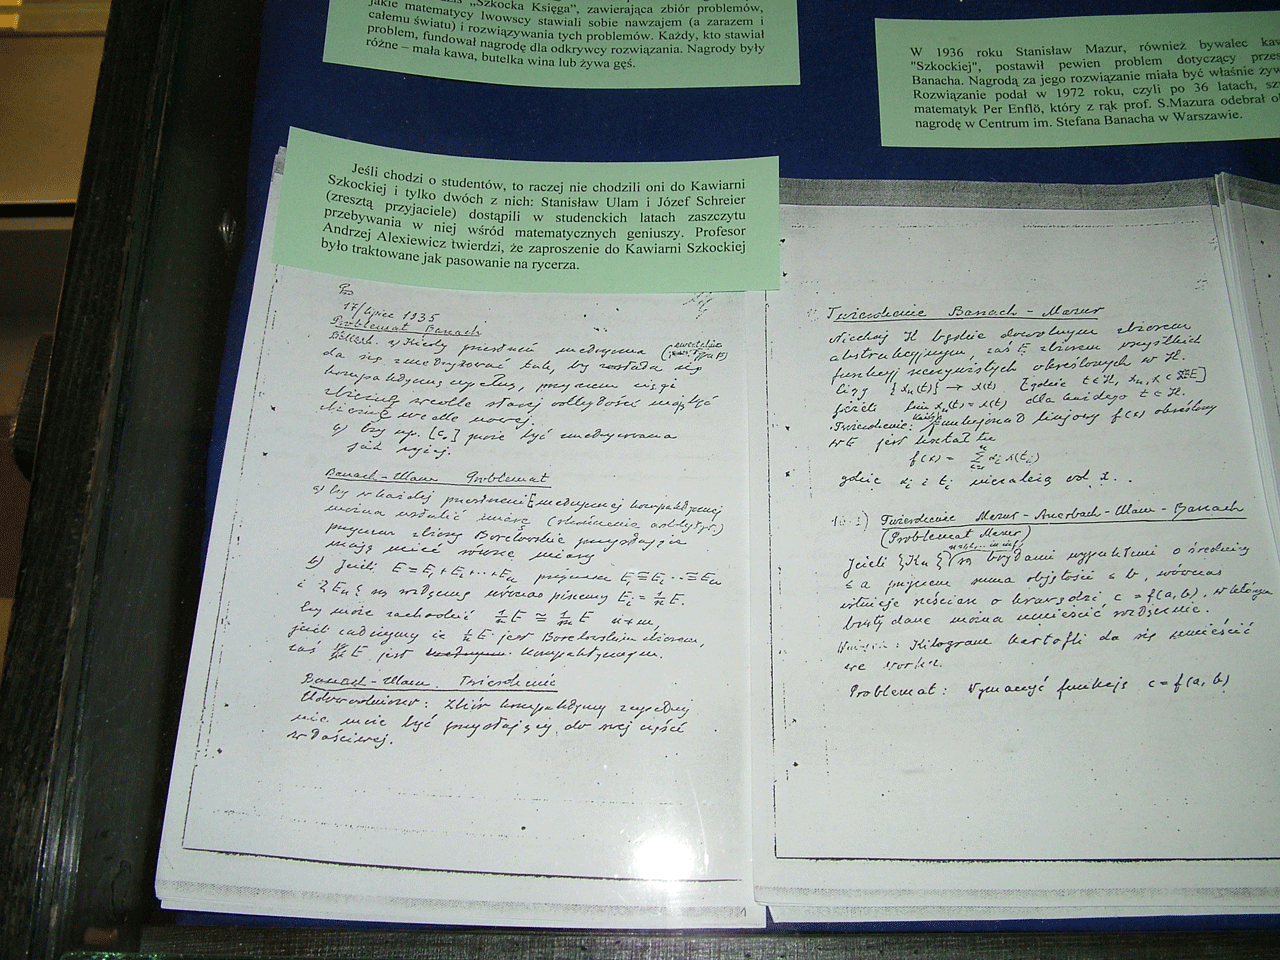 „Szkocka Księga”, zawierająca zbiór problemów,
jakie matematycy lwowscy stawiali sobie nawzajem (a zarazem i
całemu światu) i rozwiązywania tych problemów. Każdy, kto stawiał
problem, fundował nagrodę dla odkrywcy rozwiązania. Nagrody były
różne – mała kawa, butelka wina lub żywa gęś.
W 1936 roku Stanisław Mazur, również bywalec
"Szkockiej", postawił pewien problem dotyczący
Banacha. Nagrodą za jego rozwiązanie miała być właśnie
Rozwiązanie podał w 1972 roku, czyli po 36 latach,
matematyk Per Enflö, który z rąk prof. S.Mazura odebrał
nagrodę w Centrum im. Stefana Banacha w Warszawie.
Jeśli chodzi o studentów, to raczej nie chodzili oni do Kawiarni
Szkockiej i tylko dwóch z nich: Stanisław Ulam i Józef Schreier
(zresztą przyjaciele) dostąpili w studenckich latach zaszczytu
przebywania w niej wśród matematycznych geniuszy. Profesor
Andrzej Alexiewicz twierdzi, że zaproszenie do Kawiarni Szkockiej
było traktowane jak pasowanie na rycerza.
17/lipiec 1935
Problemat Banach
Kiedy przestrzeń metryczna
da się zmetryzować tak, by została się
kompaktyczną i zupełną, przyczem ciągi
zbieżne wedle starej odległości mają być
zbieżne wedle nowej.
b) czy np. [c₀] może być zmetryzowana
jak wyżej.
Banach-Ulam Problemat
a) Czy w każdej przestrzeni E metrycznej kompaktycznej
można ustalić miarę
przyczem zbiory Borelowskie przystające
mają mieć równe miary
b) Jeżeli E = E₁ + E₂ + … + Eₙ przyczem E₁ ≅ E₂ … ≅ Eₙ
i {Eₙ} są rozłączne wówczas piszemy Eᵢ = 1/n E.
Czy może zachodzić 1/n E ≅ 1/m E n≠m,
jeśli założymy że E jest Borelowskim zbiorem,
zaś E jest kompaktycznym.
Banach-Ulam Twierdzenie
Udowodniono: Zbiór kompaktyczny zupełny
nie może być przystający do swej części
właściwej.
Twierdzenie Banach - Mazur
Niechaj H będzie dowolnym zbiorem
abstrakcyjnym, zaś E zbiorem wszystkich
funkcyj rzeczywistych określonych w H.
{xₙ(t)} → x(t) [gdzie t ∈ H, xₙ, x ∈ E]
jeżeli lim xₙ(t) = x(t) dla każdego t ∈ H.
Twierdzenie: Każdy funkcjonał linjowy f(x) określony
w E jest kształtu
f(x) = Σ αᵢ x(tᵢ)
gdzie αᵢ i tᵢ niezależą od x.
Twierdzenie Mazur - Auerbach - Ulam - Banach
(Problemat Mazur)
Jeżeli {Kₙ} są bryłami wypukłemi o średnicy
≤ a przyczem suma objętości ≤ b, wówczas
istnieje sześcian o krawędzi c = f(a, b), w którym
bryły dane można umieścić rozłącznie.
Kilogram kartofli da się umieścić
we worku.
Problemat: Wyznaczyć funkcję c = f(a, b)